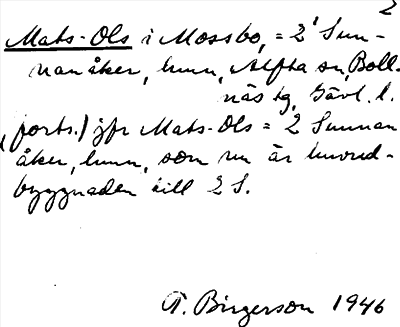 2
Mats-Ols i Mossbo, = 2¹ Sun-
nanåker, hmn, Alfta sn, Boll-
näs tg, Gävl. l.
(forts.) jfr Mats-Ols = 2 Sunnan
åker, hmn, som nu är huvud-
byggnaden till 2 S.
T. Birgerson 1946